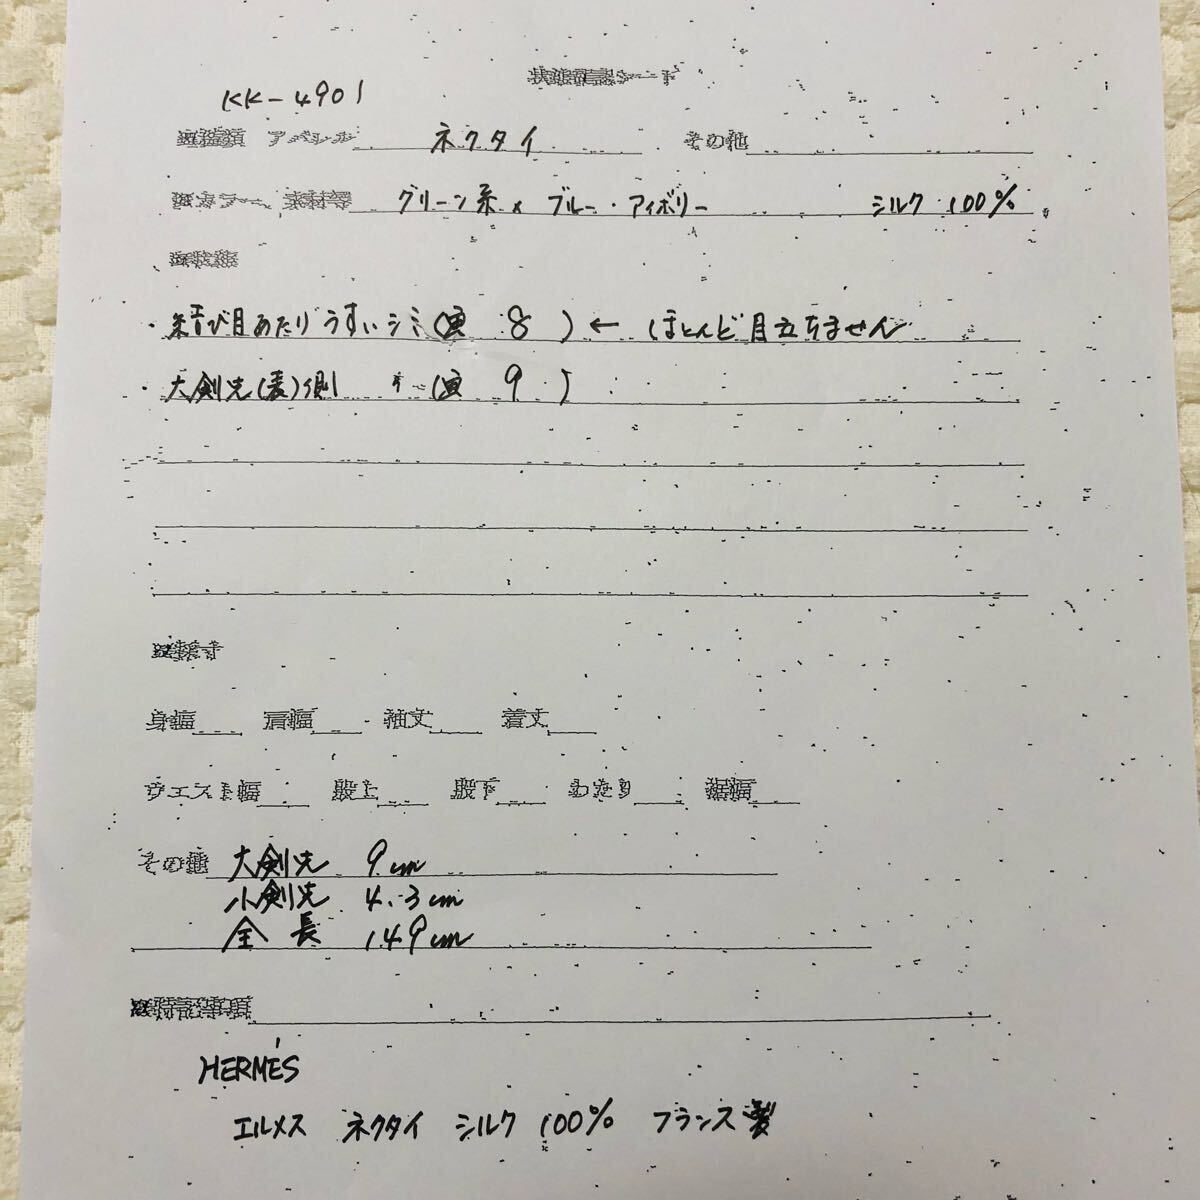 状態確認シート
KK-4901
アパレル ネクタイ その他
カラー、素材等 グリーン系 × ブルー・アイボリー シルク 100%
・結び目あたり うすいシミ(画 8 ) ← ほとんど目立ちません
・大剣先(表)側 〃 (画 9 )
身幅 肩幅 袖丈 着丈
ウエスト幅 股上 股下 わたり 裾幅
その他 大剣先 9cm
小剣先 4.3cm
全長 149cm
特記事項
HERMÈS
エルメス ネクタイ シルク 100% フランス製